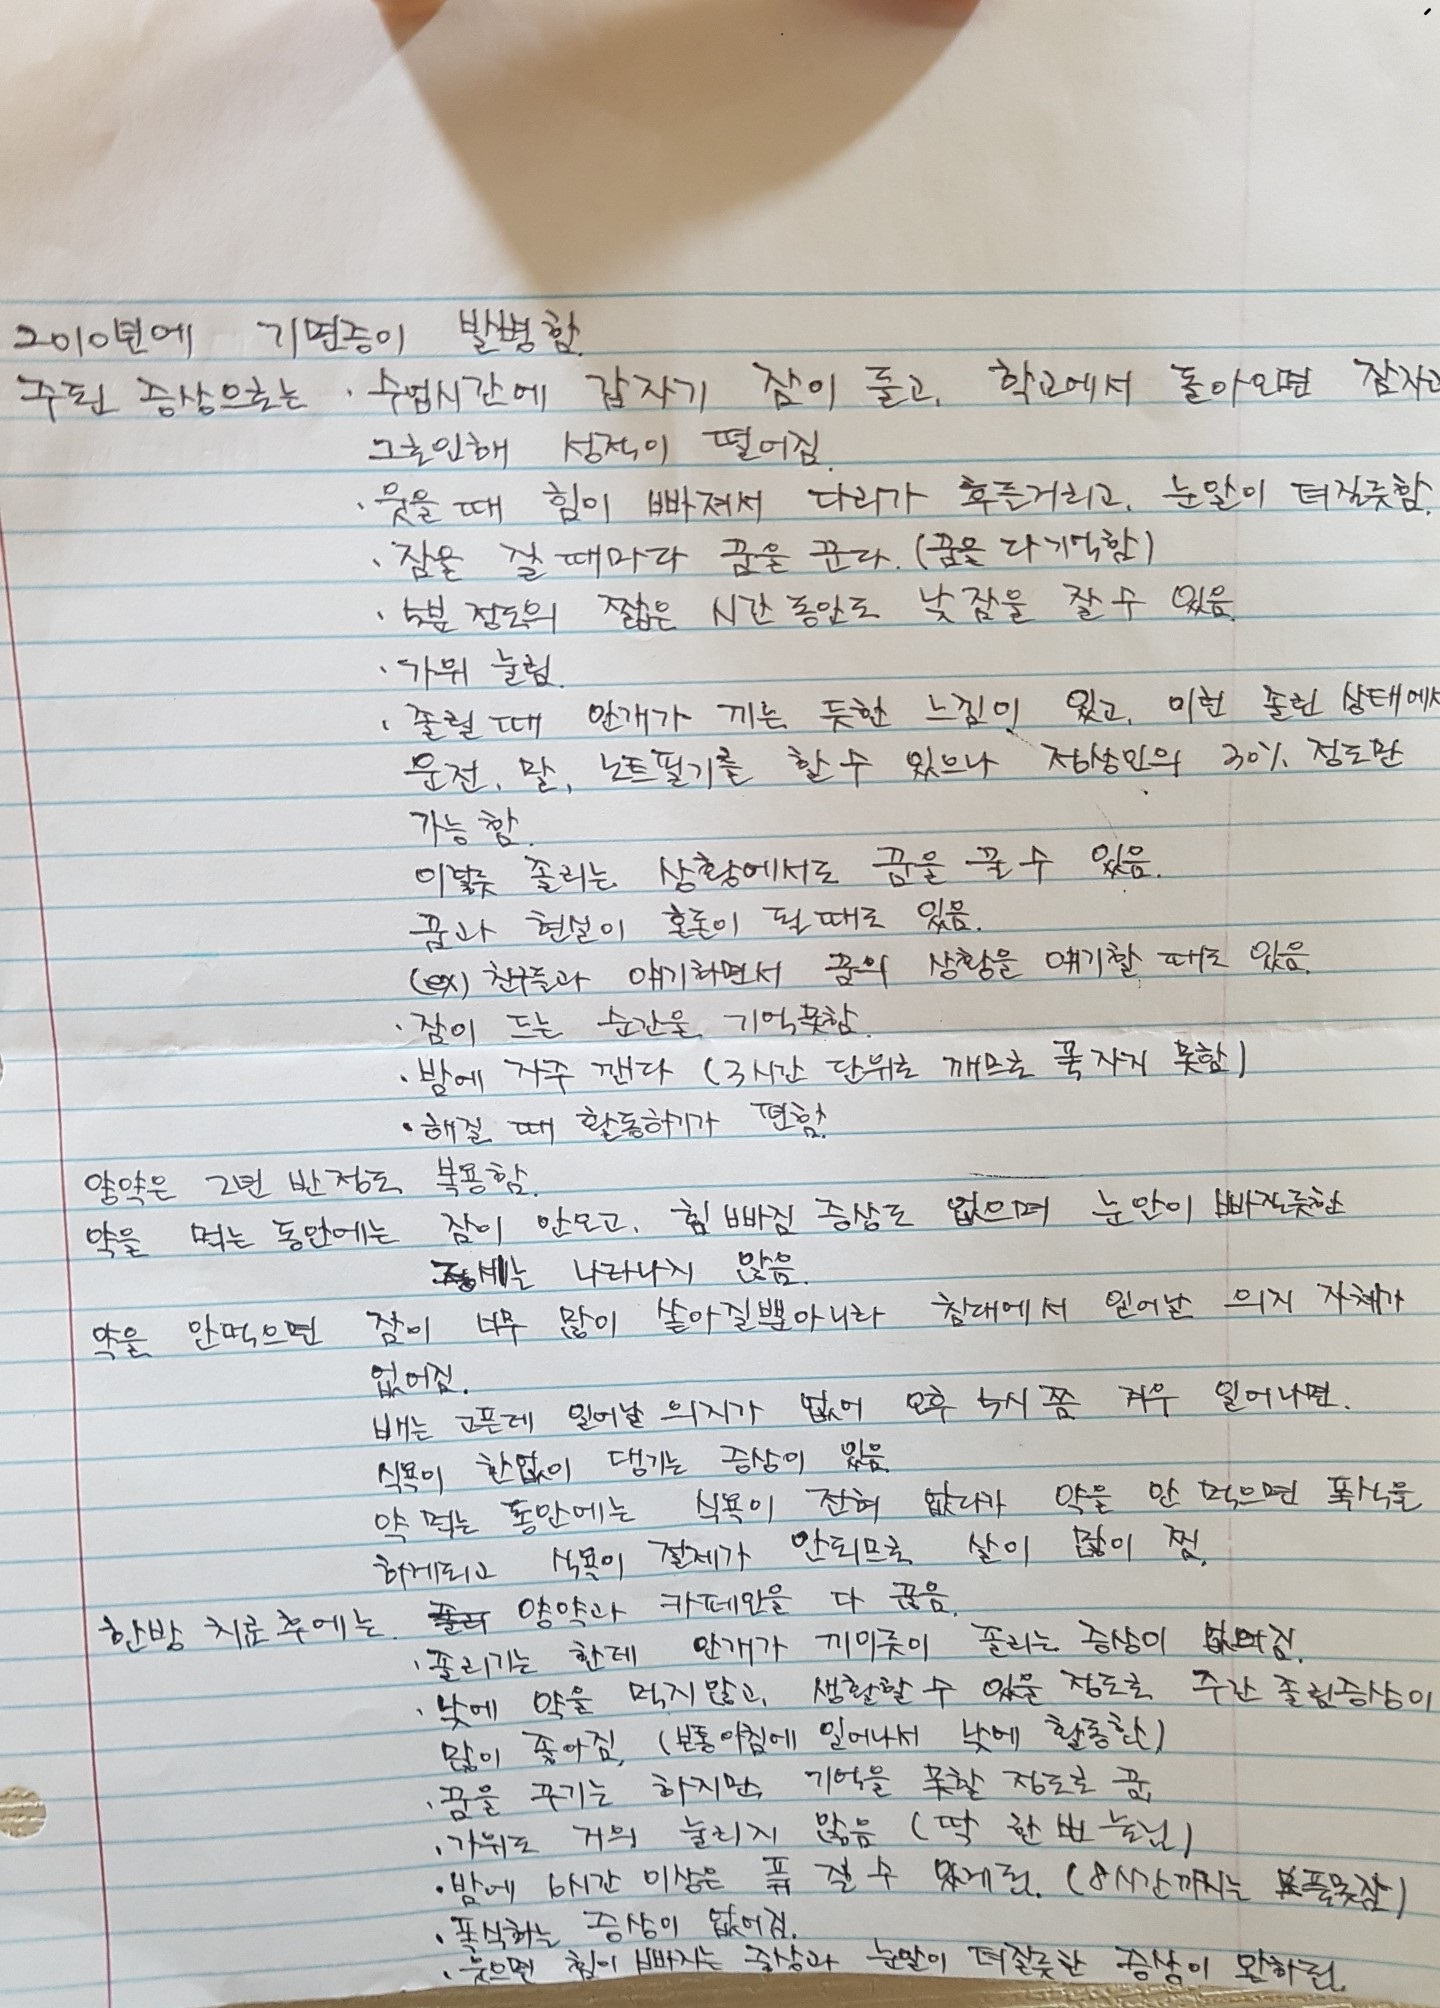 2010년에 기면증이 발병함.
주된 증상으로는 · 수업시간에 갑자기 잠이 들고, 학교에서 돌아오면 잠자고
그로인해 성적이 떨어짐.
· 웃을 때 힘이 빠져서 다리가 후들거리고, 눈알이 터질듯함.
· 잠을 잘 때마다 꿈을 꾼다. (꿈을 다 기억함)
· 5분 정도의 짧은 시간동안도 낮잠을 잘 수 있음.
· 가위 눌림.
· 졸릴 때 안개가 끼는 듯한 느낌이 있고, 이런 졸린 상태에서
운전, 말, 노트필기를 할 수 있으나 정상인의 30% 정도만
가능함.
이렇듯 졸리는 상황에서도 꿈을 꿀 수 있음.
꿈과 현실이 혼돈이 될 때도 있음.
(ex) 친구들과 얘기하면서 꿈의 상황을 얘기할 때도 있음.
· 잠이 드는 순간을 기억못함.
· 밤에 자주 깬다 (3시간 단위로 깨므로 푹 자지 못함)
· 해질 때 활동하기가 편함.
양약은 2년 반 정도 복용함.
약을 먹는 동안에는 잠이 안오고, 힘 빠짐 증상도 없으며 눈알이 빠질듯한
나타나지 않음.
약을 안먹으면 잠이 너무 많이 쏟아질뿐아니라 침대에서 일어날 의지 자체가
없어짐.
배는 고픈데 일어날 의지가 없어 오후 5시쯤 겨우 일어나면.
식욕이 한없이 댕기는 증상이 있음.
약 먹는 동안에는 식욕이 전혀 없다가 약을 안 먹으면 폭식을
하게되고 식욕이 절제가 안되므로 살이 많이 찜.
한방 치료 후에는. 양약과 카페인을 다 끊음.
· 졸리기는 한데 안개가 끼이듯이 졸리는 증상이 없어짐.
· 낮에 약을 먹지 않고, 생활할 수 있을 정도로 주간 졸림증상이
많이 좋아짐. (보통 아침에 일어나서 낮에 활동함)
· 꿈을 꾸기는 하지만, 기억을 못할 정도로 꿈.
· 가위도 거의 눌리지 않음 (딱 한 번 눌림)
· 밤에 6시간 이상은 푹 잘 수 있게됨. (8시간까지는 푹 못잠)
· 폭식하는 증상이 없어짐.
· 웃으면 힘이 빠지는 증상과 눈알이 터질듯한 증상이 완화됨.